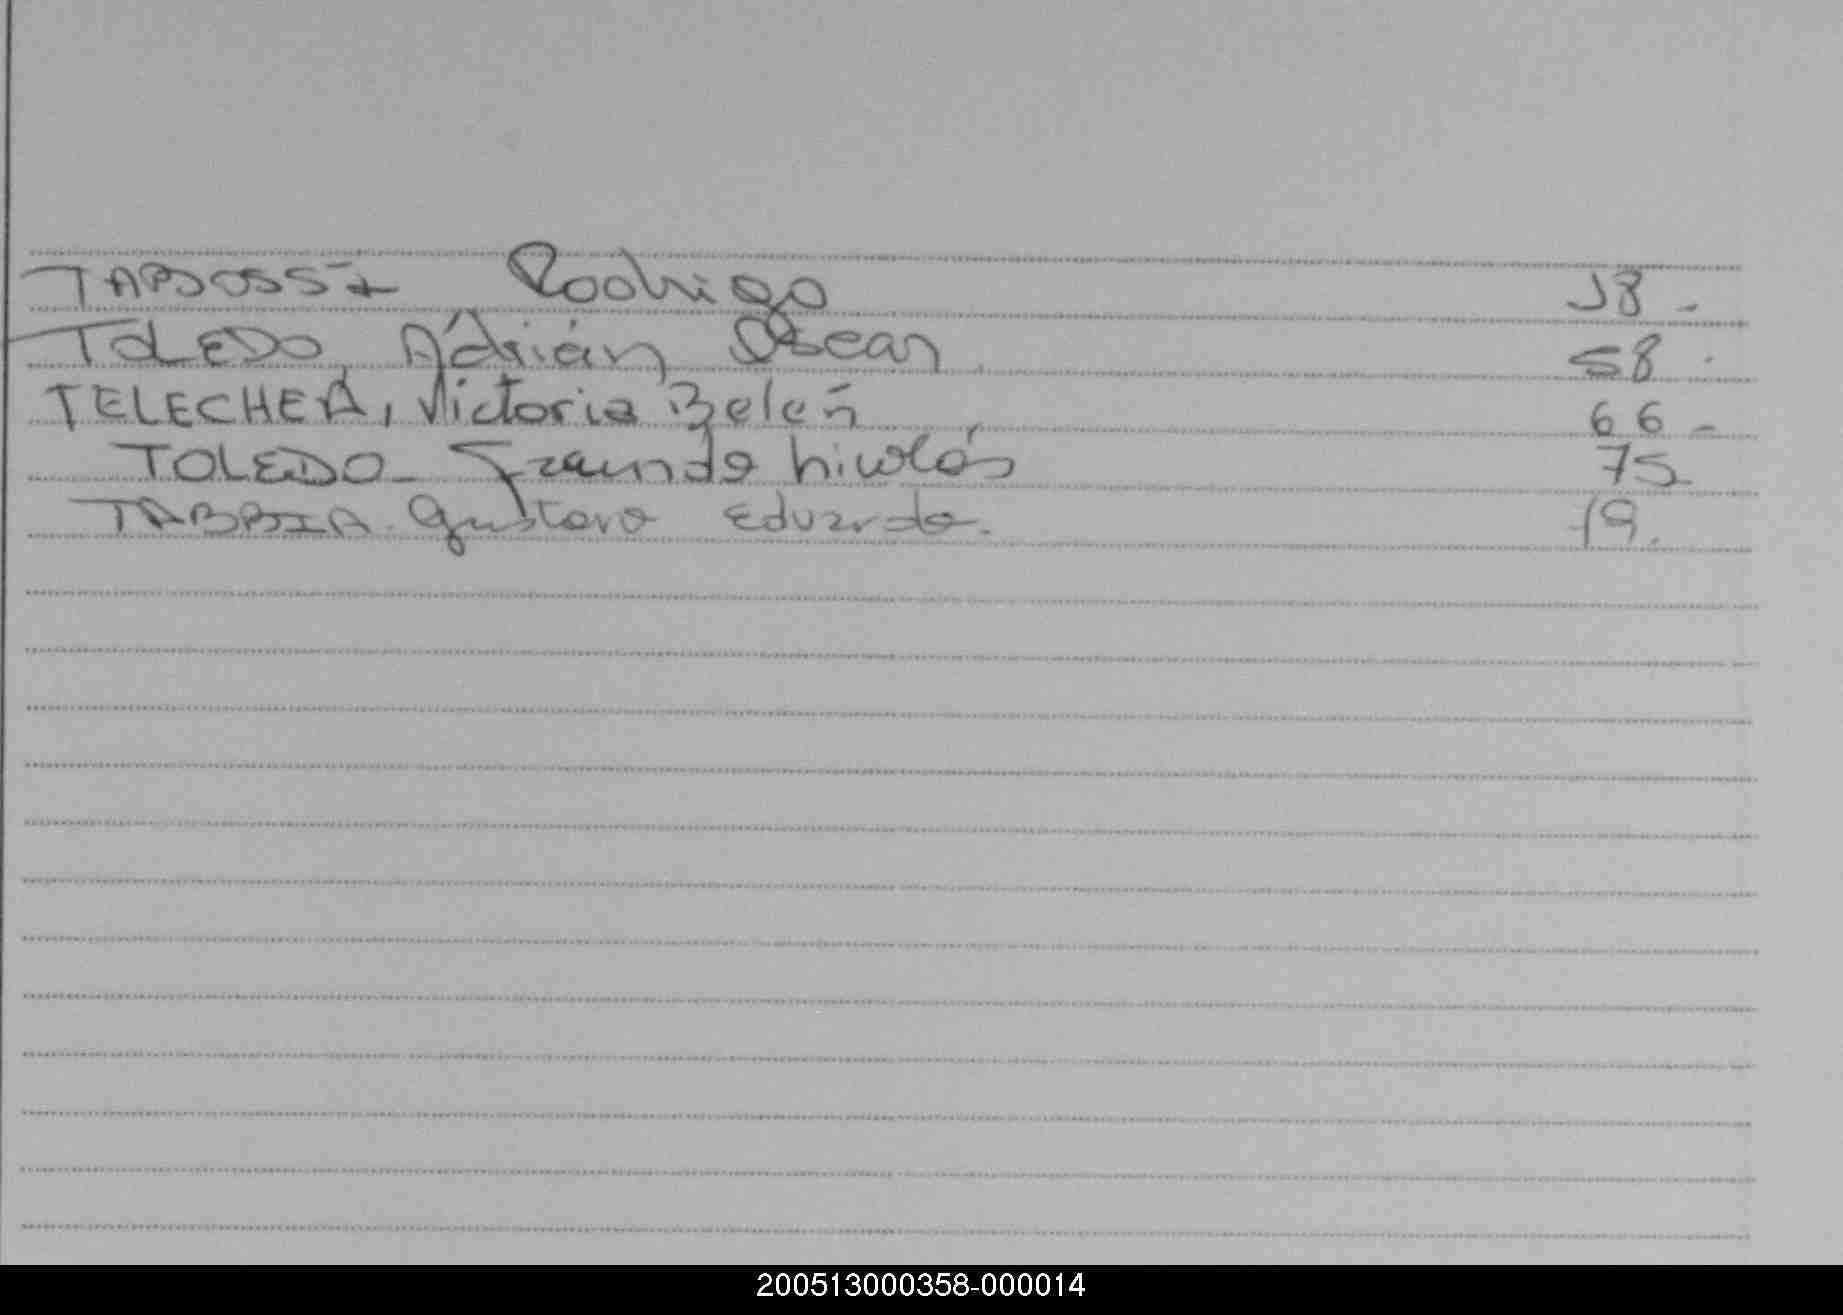 Rodrigo 18-
TOLEDO Adrián Oscar. 58.
TELECHEA, Victoria Belén 66-
TOLEDO- Facundo Nicolás 75
TABBIA. Gustavo Eduardo. 19.
200513000358-000014